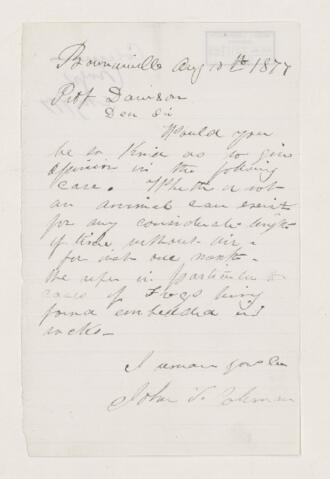 Bowmanville Aug 10th 1877
Prof Dawson
Dear Sir
Would you
be so kind as to give
opinion in the following
case. Whether or not
an animal can exist
for any considerable length
of time, without air,
for one month
refer in particular to
cases of Frogs being
found embedded in
rocks -
I remain yours
John T.